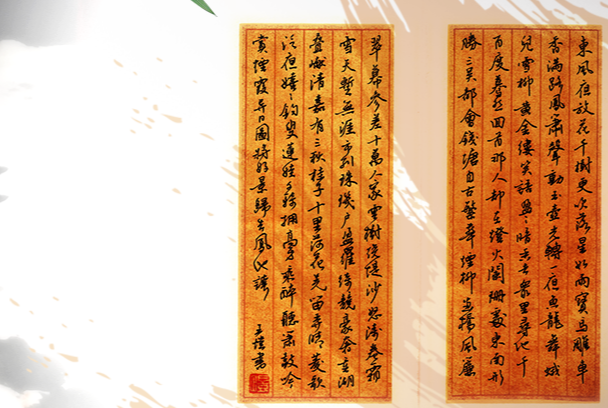 東風夜放花千樹更吹落星如雨寶馬雕車
香滿路鳳簫聲動玉壺光轉一夜魚龍舞蛾
兒雪柳黃金縷笑語盈々暗香去衆里尋他千
百度驀然回首那人却在燈火闌珊處東南形
勝三吳都會錢塘自古繁華煙柳畫橋風簾
翠幕參差十萬人家雲樹繞堤沙怒濤卷霜
雪天塹無涯市列珠璣戶盈羅綺競豪奢重湖
疊巘清嘉有三秋桂子十里荷花羌管弄晴菱歌
泛夜嬉々釣叟蓮娃千騎擁高牙乘醉聽簫鼓吟
賞煙霞異日圖將好景歸去鳳池誇